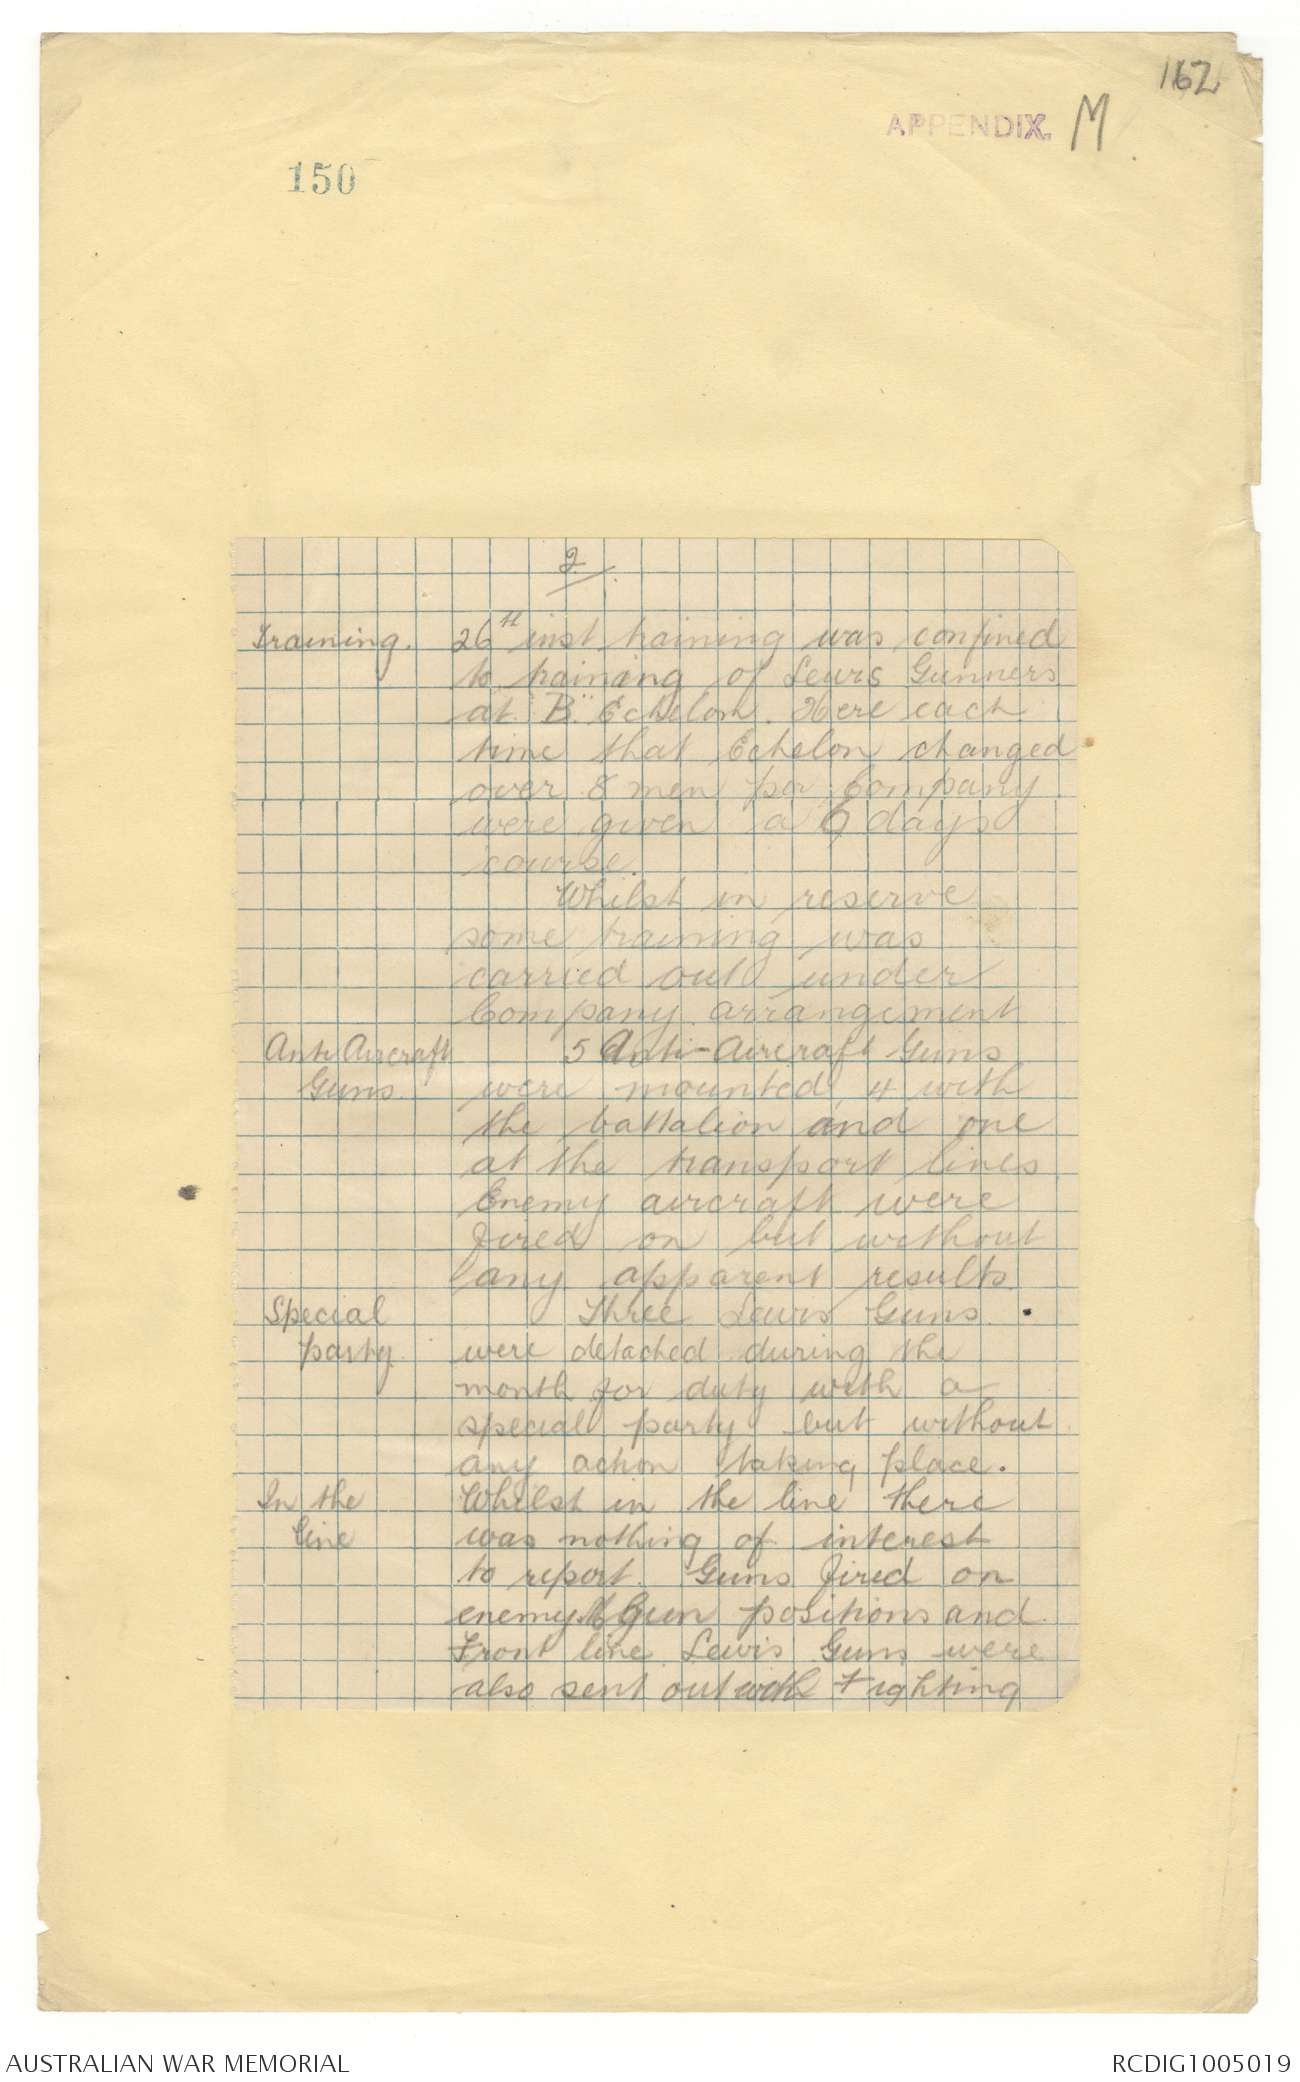 162
APPENDIX. M
150
2.
Training. 26th inst training was confined
to training of Lewis Gunners
at "B" Echelon. Here each
time that Echelon changed
over 8 men per Company
were given a 6 days
course.
Whilst in reserve
some training was
carried out under
Company arrangement
Anti Aircraft 5 Anti-Aircraft Guns
Guns. were mounted, 4 with
the battalion and one
at the transport lines
Enemy aircraft were
fired on but without
any apparent results.
Special Three Lewis Guns
party. were detached during the
month for duty with a
special party but without
any action taking place.
In the Whilst in the line there
line was nothing of interest
to report. Guns fired on
enemy M Gun positions and
Front line. Lewis Guns were
also sent out with Fighting
AUSTRALIAN WAR MEMORIAL
RCDIG1005019